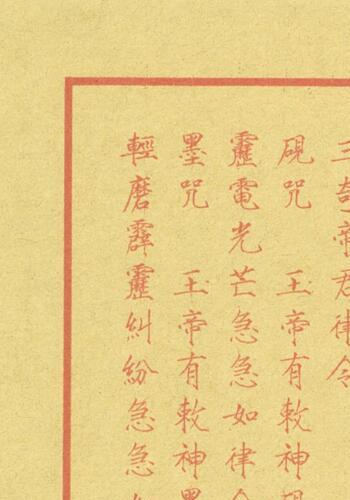 三奇帝君律令
硯咒 玉帝有敕神硯
靂電光芒急急如律令
墨咒 玉帝有敕神墨
輕磨霹靂糾紛急急